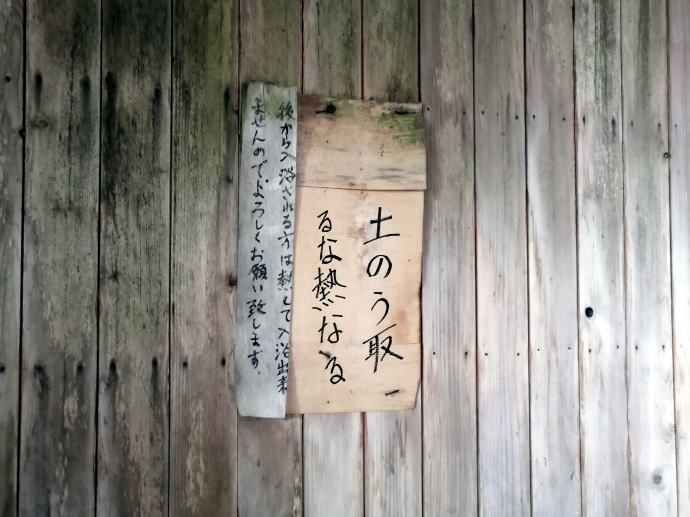 土のう取
るな熱なる
後から入浴される方は熱して入浴出来
ませんのでよろしくお願い致します。